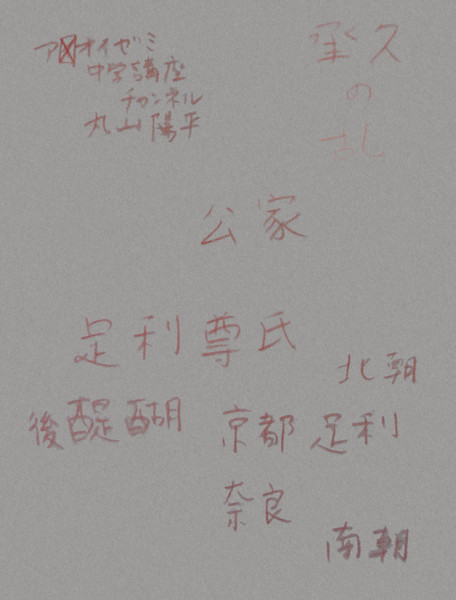 アオイゼミ
中学講座
チャンネル
丸山陽平
承久
の
乱
公家
足利尊氏
北朝
後醍醐
京都 足利
奈良
南朝